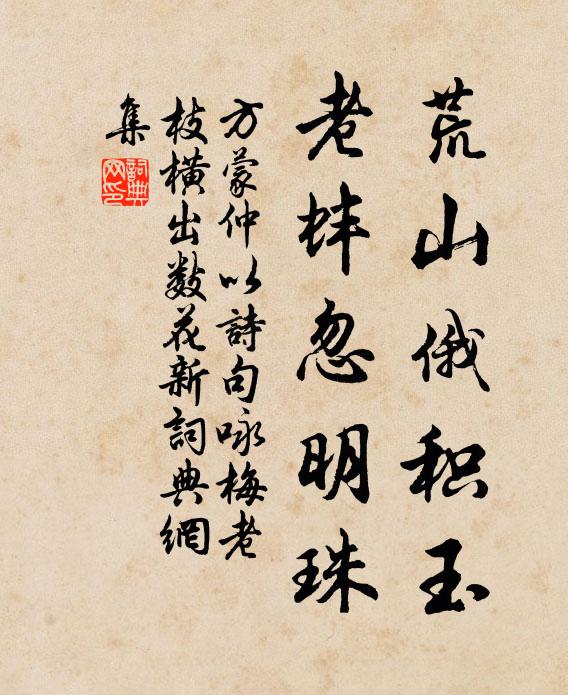 荒山俄积玉
老蚌忽明珠
方蒙仲以詩句咏梅老
枝横出数花新詞典網
集
詞典
网印